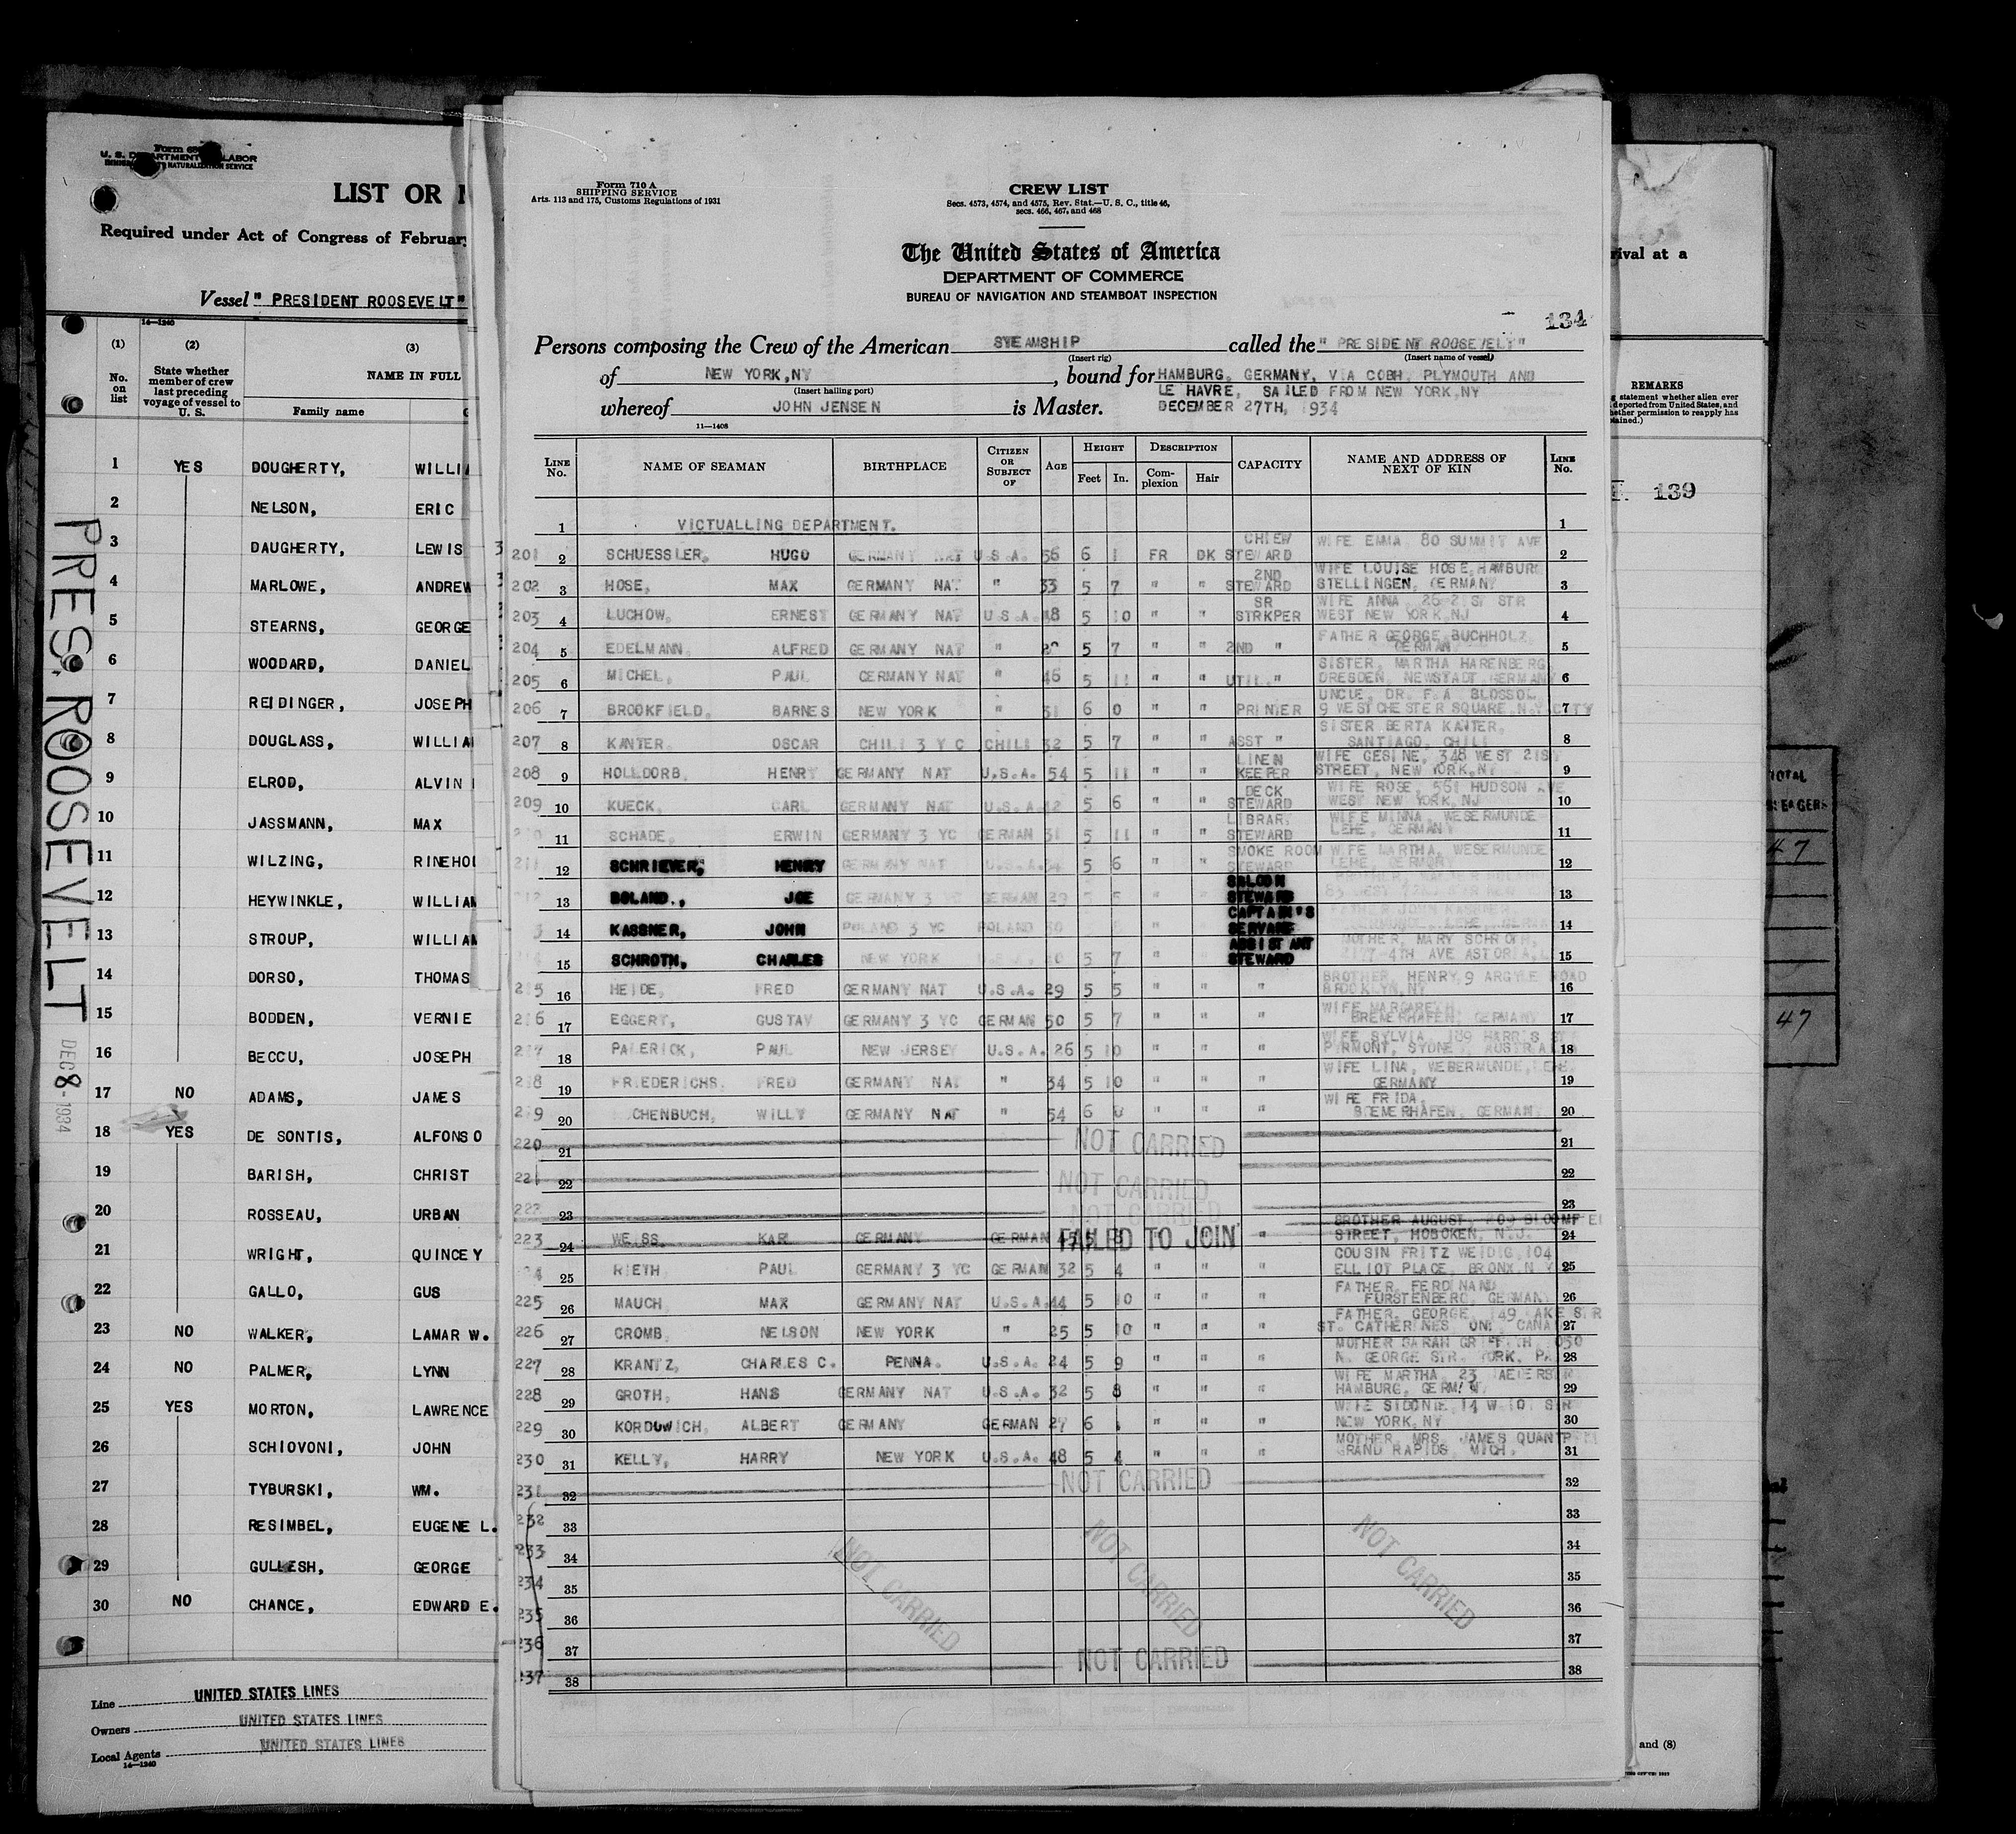 Form 710 A
SHIPPING SERVICE
Arts. 113 and 175, Customs Regulations of 1931
CREW LIST
Secs. 4573, 4574, and 4575, Rev. Stat.—U. S. C., title 46,
secs. 466, 467, and 468
The United States of America
DEPARTMENT OF COMMERCE
BUREAU OF NAVIGATION AND STEAMBOAT INSPECTION
134
Persons composing the Crew of the American STEAMSHIP called the "PRESIDENT ROOSEVELT"
(Insert rig) (Insert name of vessel)
of NEW YORK,NY , bound for HAMBURG, GERMANY, VIA COBH, PLYMOUTH AND
(Insert hailing port) LE HAVRE, SAILED FROM NEW YORK,NY
whereof JOHN JENSEN is Master. DECEMBER 27TH, 1934
11—1408
LINE No. NAME OF SEAMAN BIRTHPLACE CITIZEN OR SUBJECT OF AGE HEIGHT Feet In. DESCRIPTION Complexion Hair CAPACITY NAME AND ADDRESS OF NEXT OF KIN LINE No.
1 VICTUALLING DEPARTMENT. 1
201 2 SCHUESSLER, HUGO GERMANY NAT U.S.A. 56 6 1 FR DK CHIEW STEWARD WIFE EMMA, 80 SUMMIT AVE 2
202 3 HOSE, MAX GERMANY NAT " 33 5 7 " " 2ND STEWARD WIFE LOUISE HOSE, HAMBURG STELLINGEN, GERMANY 3
203 4 LUCHOW, ERNEST GERMANY NAT U.S.A. 48 5 10 " " SR STRKPER WIFE ANNA, WEST NEW YORK,NJ 4
204 5 EDELMANN, ALFRED GERMANY NAT " 5 7 " " 2ND " FATHER GEORGE, BUCHHOLZ, GERMAN 5
205 6 MICHEL, PAUL GERMANY NAT " 46 5 11 " " UTIL." SISTER, MARTHA HARENBERG DRESDEN, NEWSTADT, GERMANY 6
206 7 BROOKFIELD, BARNES NEW YORK " 31 6 0 " " PRINTER UNCLE, DR. F.A BLOSSOL, 9 WESTCHESTER SQUARE, N.Y.CITY 7
207 8 KANTER, OSCAR CHILI 3 YC CHILI 32 5 7 " " ASST " SISTER BERTA KANTER, SANTIAGO, CHILI 8
208 9 HOLLDORB, HENRY GERMANY NAT U.S.A. 54 5 11 " " LINEN KEEPER WIFE GESINE, 348 WEST 21ST STREET, NEW YORK,NY 9
209 10 KUECK, CARL GERMANY NAT U.S.A. 42 5 6 " " DECK STEWARD WIFE ROSE, 561 HUDSON AVE WEST NEW YORK,NJ 10
11 SCHADE, ERWIN GERMANY 3 YC GERMAN 31 5 11 " " LIBRARY STEWARD WIFE MINNA, WESERMUNDE LEHE, GERMANY 11
12 SCHRIEVER, HENRY GERMANY NAT U.S.A. 5 6 " " SMOKE ROOM STEWARD WIFE MARTHA, WESERMUNDE LEHE, GERMANY 12
13 BOLAND., JOE GERMANY 3 YC GERMAN 29 5 5 " SALOON STEWARD 13
14 KASSNER, JOHN POLAND 3 YC POLAND 30 " CAPTAIN'S SERVANT FATHER JOHN KASSNER 14
15 SCHROTH, CHARLES NEW YORK 5 7 " " ASSISTANT STEWARD MOTHER, MARY SCHROTH, 4TH AVE ASTORIA 15
215 16 HEIDE, FRED GERMANY NAT U.S.A. 29 5 5 " " " BROTHER, HENRY, 9 ARGYLE ROAD BROOKLYN,NY 16
216 17 EGGERT, GUSTAV GERMANY 3 YC GERMAN 50 5 7 " " " WIFE MARGARETH, BREMERHAFEN, GERMANY 17
217 18 PALERICK, PAUL NEW JERSEY U.S.A. 26 5 10 " " " WIFE SYLVIA, 189 HARRIS ST PYRMONT, SYDNEY, AUSTRALIA 18
218 19 FRIEDERICHS, FRED GERMANY NAT " 34 5 10 " " " WIFE LINA, WEBERMUNDE, LEHE, GERMANY 19
219 20 CHENBUCH, WILLY GERMANY NAT " 54 6 0 " " " WIFE FRIDA, BREMERHAFEN, GERMAN 20
220 21 NOT CARRIED 21
221 22 NOT CARRIED 22
222 23 NOT CARRIED 23
223 24 WEISS, KARL GERMANY GERMAN FAILED TO JOIN " BROTHER AUGUST, 809 BLOOMFIEL STREET, HOBOKEN, N.J. 24
25 RIETH, PAUL GERMANY 3 YC GERMAN 32 5 4 " " " COUSIN FRITZ WEIDIG, 104 ELLIOT PLACE, BRONX,N Y 25
225 26 MAUCH, MAX GERMANY NAT U.S.A. 44 5 10 " " " FATHER, FERDINAND, FURSTENBERG, GERMANY 26
226 27 CROMB, NELSON NEW YORK " 25 5 10 " " " FATHER, GEORGE, 149 LAKE STR ST. CATHERINES ONT, CANA 27
227 28 KRANTZ, CHARLES C. PENNA. U.S.A. 24 5 9 " " " MOTHER SARAH GRIFFITH, N. GEORGE STR. YORK, PA 28
228 29 GROTH, HANS GERMANY NAT U.S.A. 32 5 8 " " " WIFE MARTHA, 23 HAMBURG, GERMANY 29
229 30 KORDUWICH, ALBERT GERMANY GERMAN 27 6 " " " WIFE SIDONIE, 14 W 101 STR NEW YORK,NY 30
230 31 KELLY, HARRY NEW YORK U.S.A. 48 5 4 " " MOTHER, MRS. JAMES GRAND RAPIDS, MICH. 31
231 32 NOT CARRIED 32
232 33 33
233 34 34
234 35 NOT CARRIED NOT CARRIED NOT CARRIED 35
235 36 36
236 37 37
237 38 NOT CARRIED 38
U. S. DEPARTMENT OF LABOR
LIST OR
Required under Act of Congress of February
Vessel " PRESIDENT ROOSEVELT"
14—1240
(1) (2) (3)
No. on list State whether member of crew last preceding voyage of vessel to U. S. NAME IN FULL
Family name
1 YES DOUGHERTY, WILLIA
2 NELSON, ERIC
3 DAUGHERTY, LEWIS
4 MARLOWE, ANDREW
5 STEARNS, GEORGE
6 WOODARD, DANIEL
7 REIDINGER, JOSEPH
8 DOUGLASS, WILLIA
9 ELROD, ALVIN
10 JASSMANN, MAX
11 WILZING, RINEHO
12 HEYWINKLE, WILLIAM
13 STROUP, WILLIAM
14 DORSO, THOMAS
15 BODDEN, VERNIE
16 BECCU, JOSEPH
17 NO ADAMS, JAMES
18 YES DE SONTIS, ALFONSO
19 BARISH, CHRIST
20 ROSSEAU, URBAN
21 WRIGHT, QUINCEY
22 GALLO, GUS
23 NO WALKER, LAMAR W.
24 NO PALMER, LYNN
25 YES MORTON, LAWRENCE
26 SCHIOVONI, JOHN
27 TYBURSKI, WM.
28 RESIMBEL, EUGENE L.
29 GULLESH, GEORGE
30 NO CHANCE, EDWARD E.
Line UNITED STATES LINES
Owners UNITED STATES LINES
Local Agents UNITED STATES LINES
14—1240
PRES. ROOSEVELT
DEC 8 - 1934
rival at a
REMARKS
g statement whether alien ever
deported from United States, and
hether permission to reapply has
tained.)
139
TOTAL
47
47
and (8)